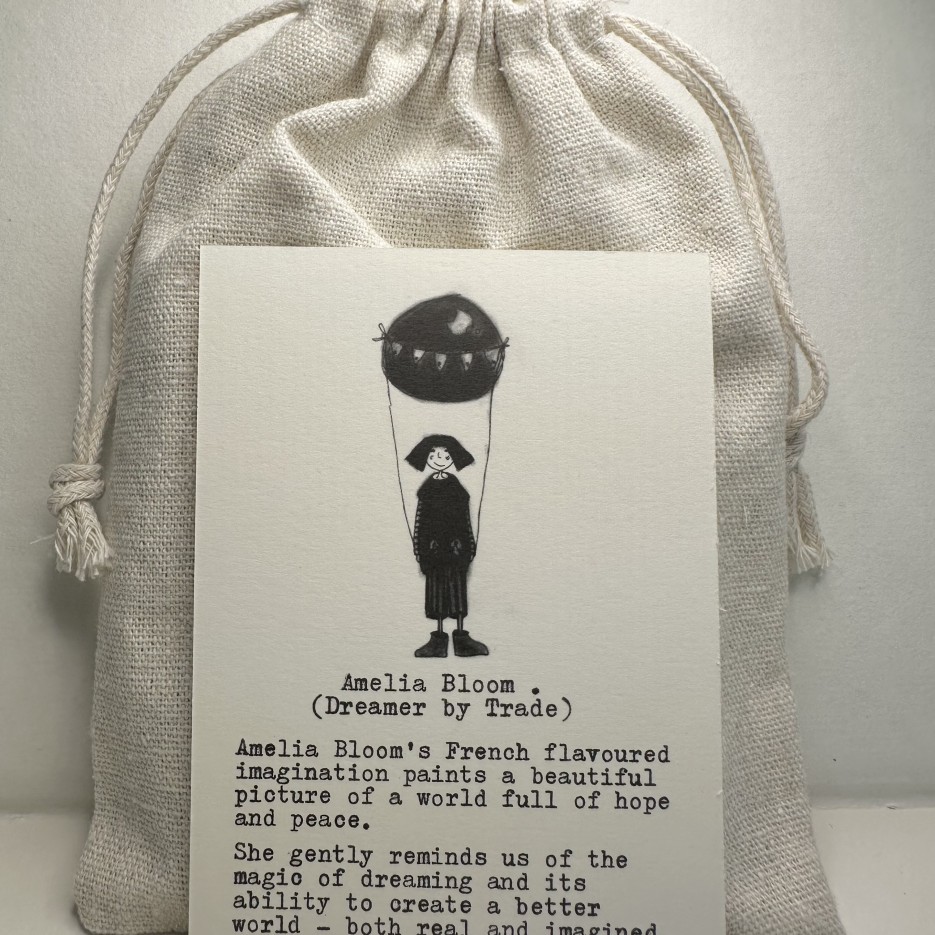 Amelia Bloom .
(Dreamer by Trade)
Amelia Bloom's French flavoured
imagination paints a beautiful
picture of a world full of hope
and peace.
She gently reminds us of the
magic of dreaming and its
ability to create a better
world - both real and imagined